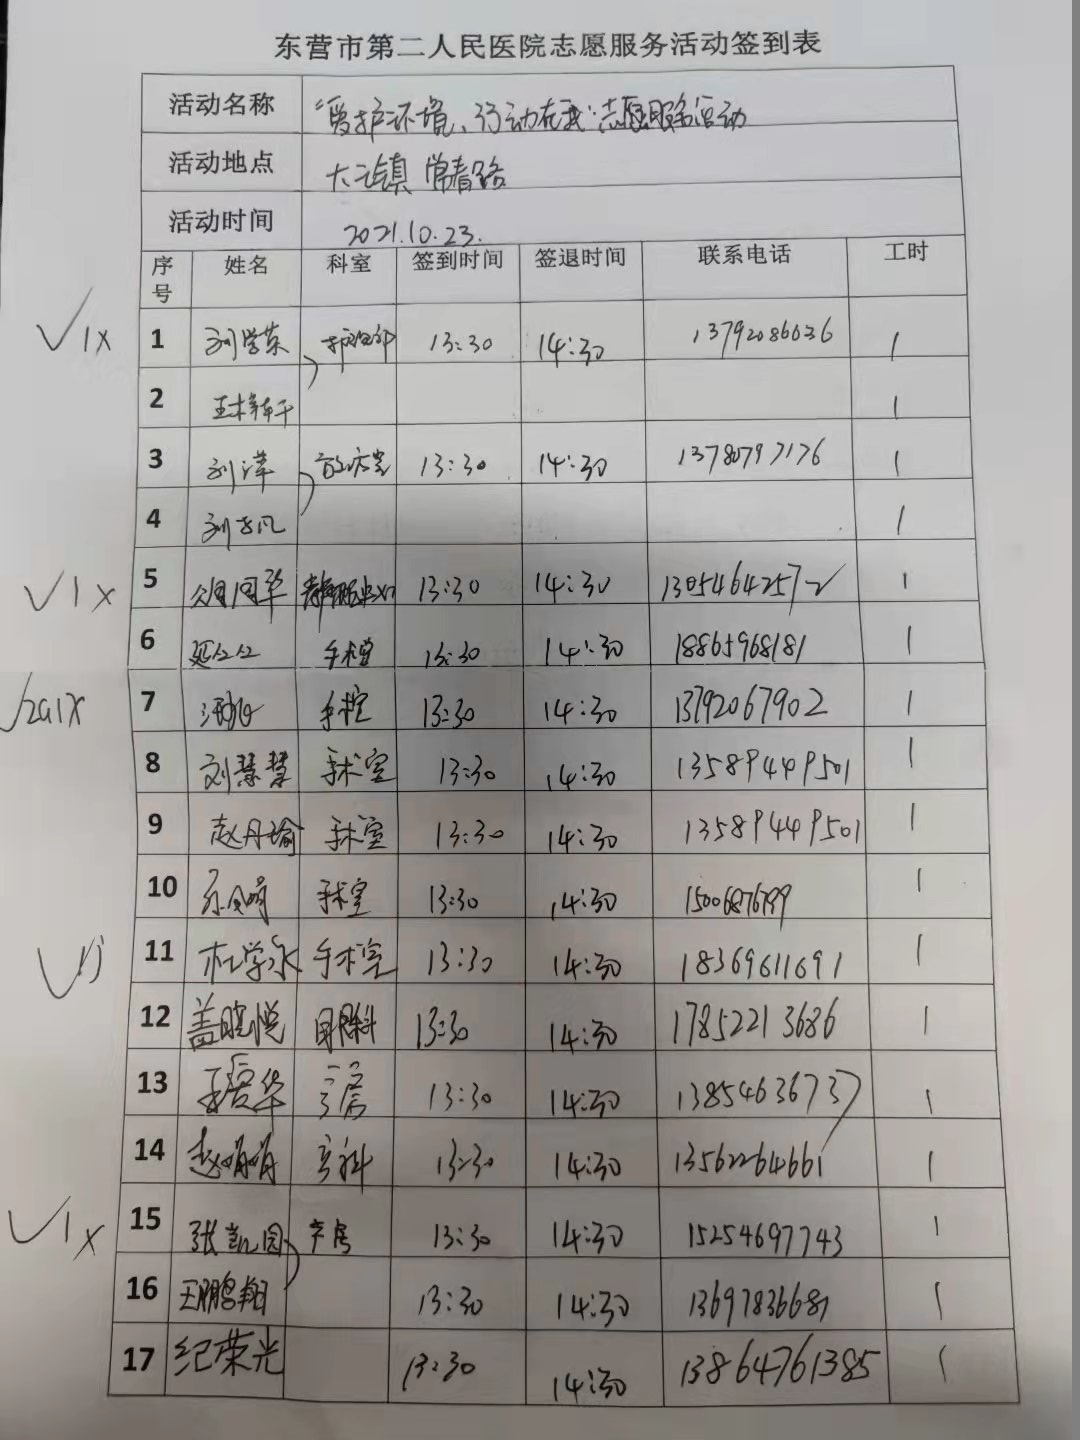 东营市第二人民医院志愿服务活动签到表
活动名称 "爱护环境、行动在我"志愿服务活动
活动地点 大王镇 常青路
活动时间 2021.10.23.
序号 姓名 科室 签到时间 签退时间 联系电话 工时
1 刘学荣 护理部 13:30 14:30 13792086636 1
2 1
3 刘洋 13:30 14:30 13780797176 1
4 1
5 13:30 14:30 13054642572 1
6 手术室 13:30 14:30 18865968181 1
7 手术室 13:30 14:30 13792067902 1
8 刘慧慧 手术室 13:30 14:30 13589449501 1
9 赵丹瑜 手术室 13:30 14:30 13589449501 1
10 手术室 13:30 14:30 1
11 杜学永 手术室 13:30 14:30 18369611691 1
12 盖晓悦 13:30 14:30 17852213686 1
13 王爱华 产房 13:30 14:30 13854636737 1
14 赵娟娟 产科 13:30 14:30 13562264661 1
15 张凯园 产房 13:30 14:30 15254697743 1
16 王鹏翔 13:30 14:30 13697836681 1
17 纪荣光 13:30 14:30 13864761385 1